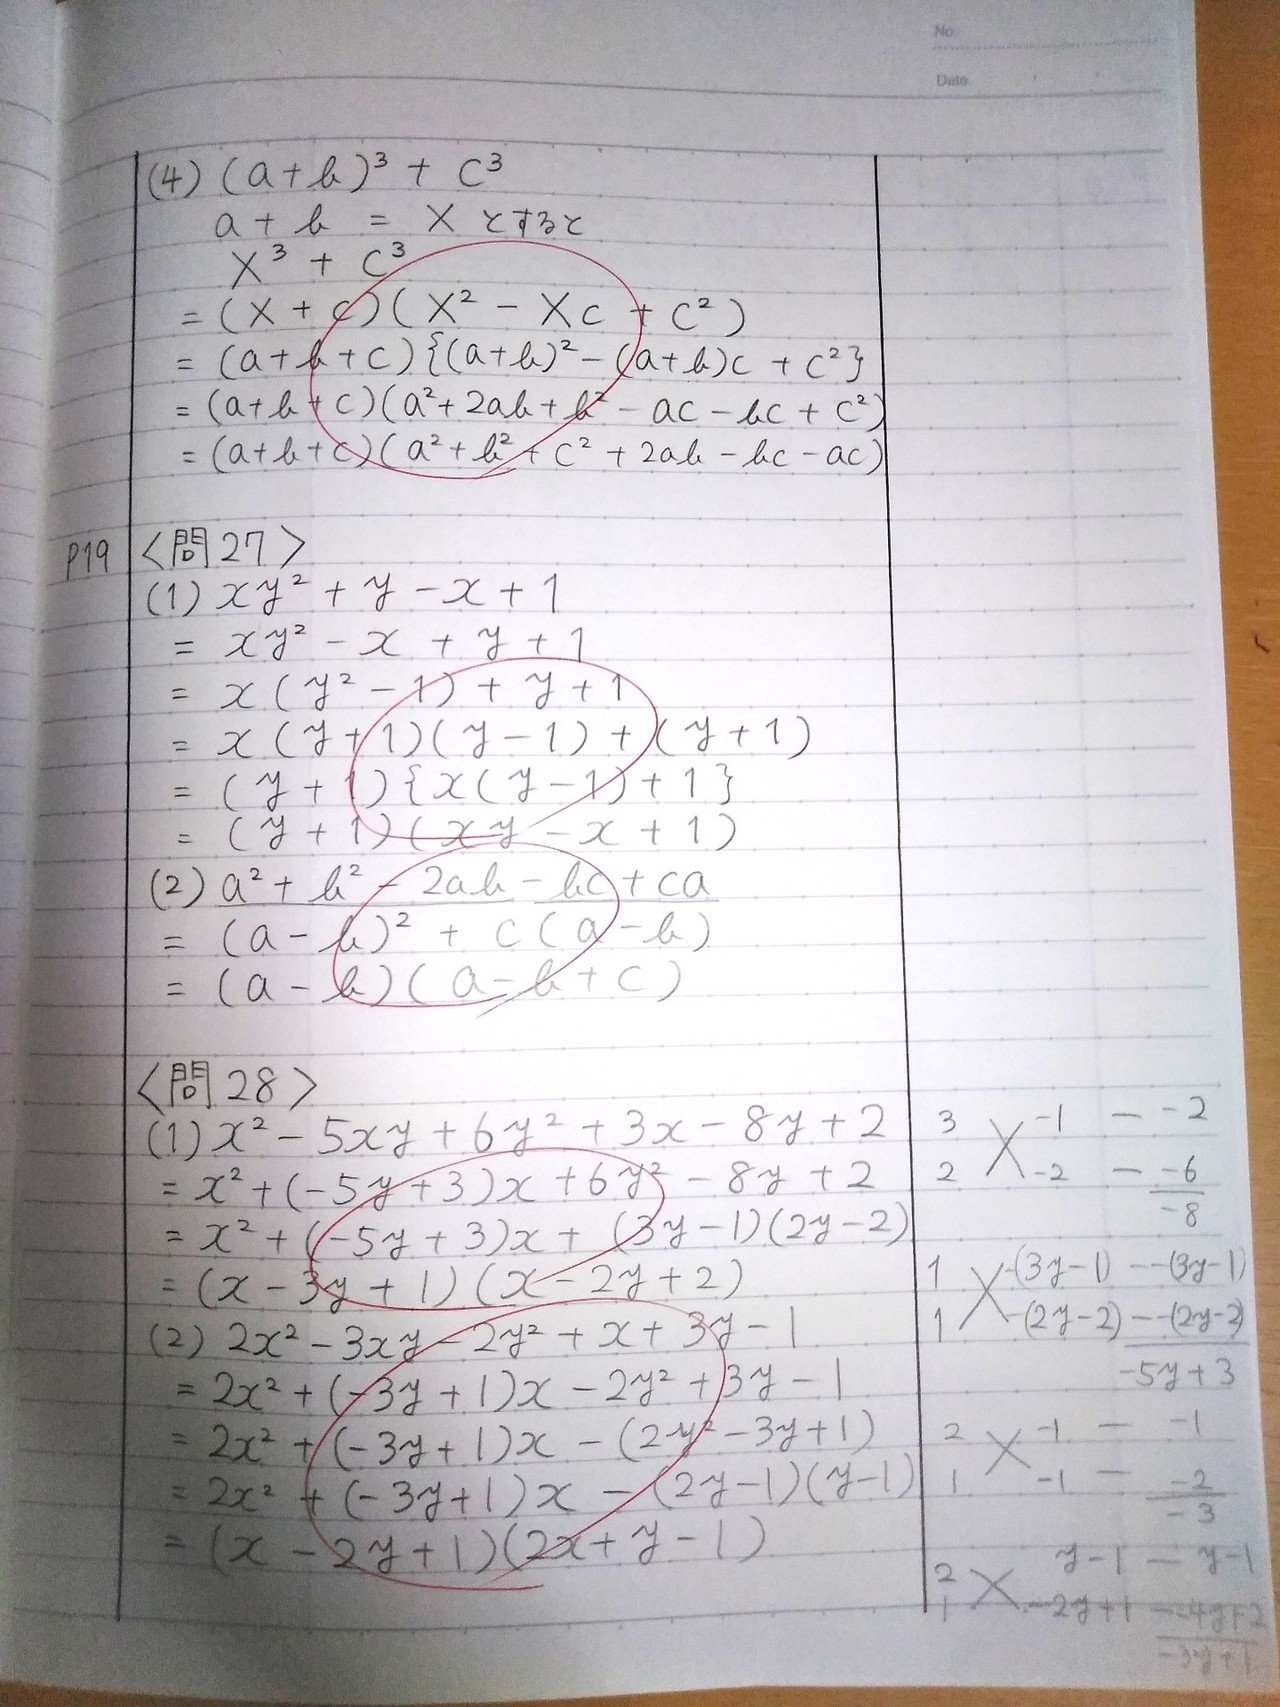 No.
Date
(4) (a+b)³ + c³
a + b = X とすると
X³ + c³
= (X + c)(X² - Xc + c²)
= (a+b+c){(a+b)² - (a+b)c + c²}
= (a+b+c)(a² + 2ab + b² - ac - bc + c²)
= (a+b+c)(a² + b² + c² + 2ab - bc - ac)
P19 〈問27〉
(1) xy² + y - x + 1
= xy² - x + y + 1
= x(y² - 1) + y + 1
= x(y+1)(y-1) + (y+1)
= (y+1){x(y-1)+1}
= (y+1)(xy - x + 1)
(2) a² + b² - 2ab - bc + ca
= (a-b)² + c(a-b)
= (a-b)(a-b+c)
〈問28〉
(1) x² - 5xy + 6y² + 3x - 8y + 2
= x² + (-5y+3)x + 6y² - 8y + 2
= x² + (-5y+3)x + (3y-1)(2y-2)
= (x - 3y + 1)(x - 2y + 2)
(2) 2x² - 3xy - 2y² + x + 3y - 1
= 2x² + (-3y+1)x - 2y² + 3y - 1
= 2x² + (-3y+1)x - (2y² - 3y + 1)
= 2x² + (-3y+1)x - (2y-1)(y-1)
= (x - 2y + 1)(2x + y - 1)
3 ╳ -1 — -2
2 -2 — -6
-8
1 ╳ -(3y-1) — -(3y-1)
1 -(2y-2) — -(2y-2)
-5y+3
2 ╳ -1 — -1
1 -1 — -2
-3
2 ╳ y-1 — y-1
1 -2y+1 — -4y+2
-3y+1